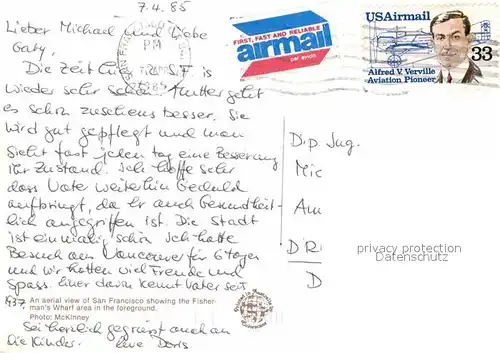 7.4.85
Lieber Michael und liebe
Gaby,
Die Zeit in S.F. is
wieder sehr schön. Mutter geht
es schon zusehens besser. Sie
wird gut gepflegt und man
sieht fast jeden tag eine Besserung
ihr Zustand. Ich hoffe sehr
dass Vater weiterhin Geduld
aufbringt, da Er auch Gesundheit-
lich angegriffen ist. Die Stadt
ist einmalig schön Ich hatte
Besuch aus Vancouver für 6 tagen
und wir hatten viel Freude und
Spass. Einer davon kennt Vater seit
1937.
An aerial view of San Francisco showing the Fisher-
man's Wharf area in the foreground.
Photo: McKinney
Sei herzlich gegrüsst auch an
die Kinder. Eure Doris
PM
1985
FIRST, FAST AND RELIABLE
airmail
par avion
USAirmail
33
Alfred V. Verville
Aviation Pioneer
Dip. Jng.
Mic
Am
DR
D
privacy protection
AnsichtskartenVersand.com